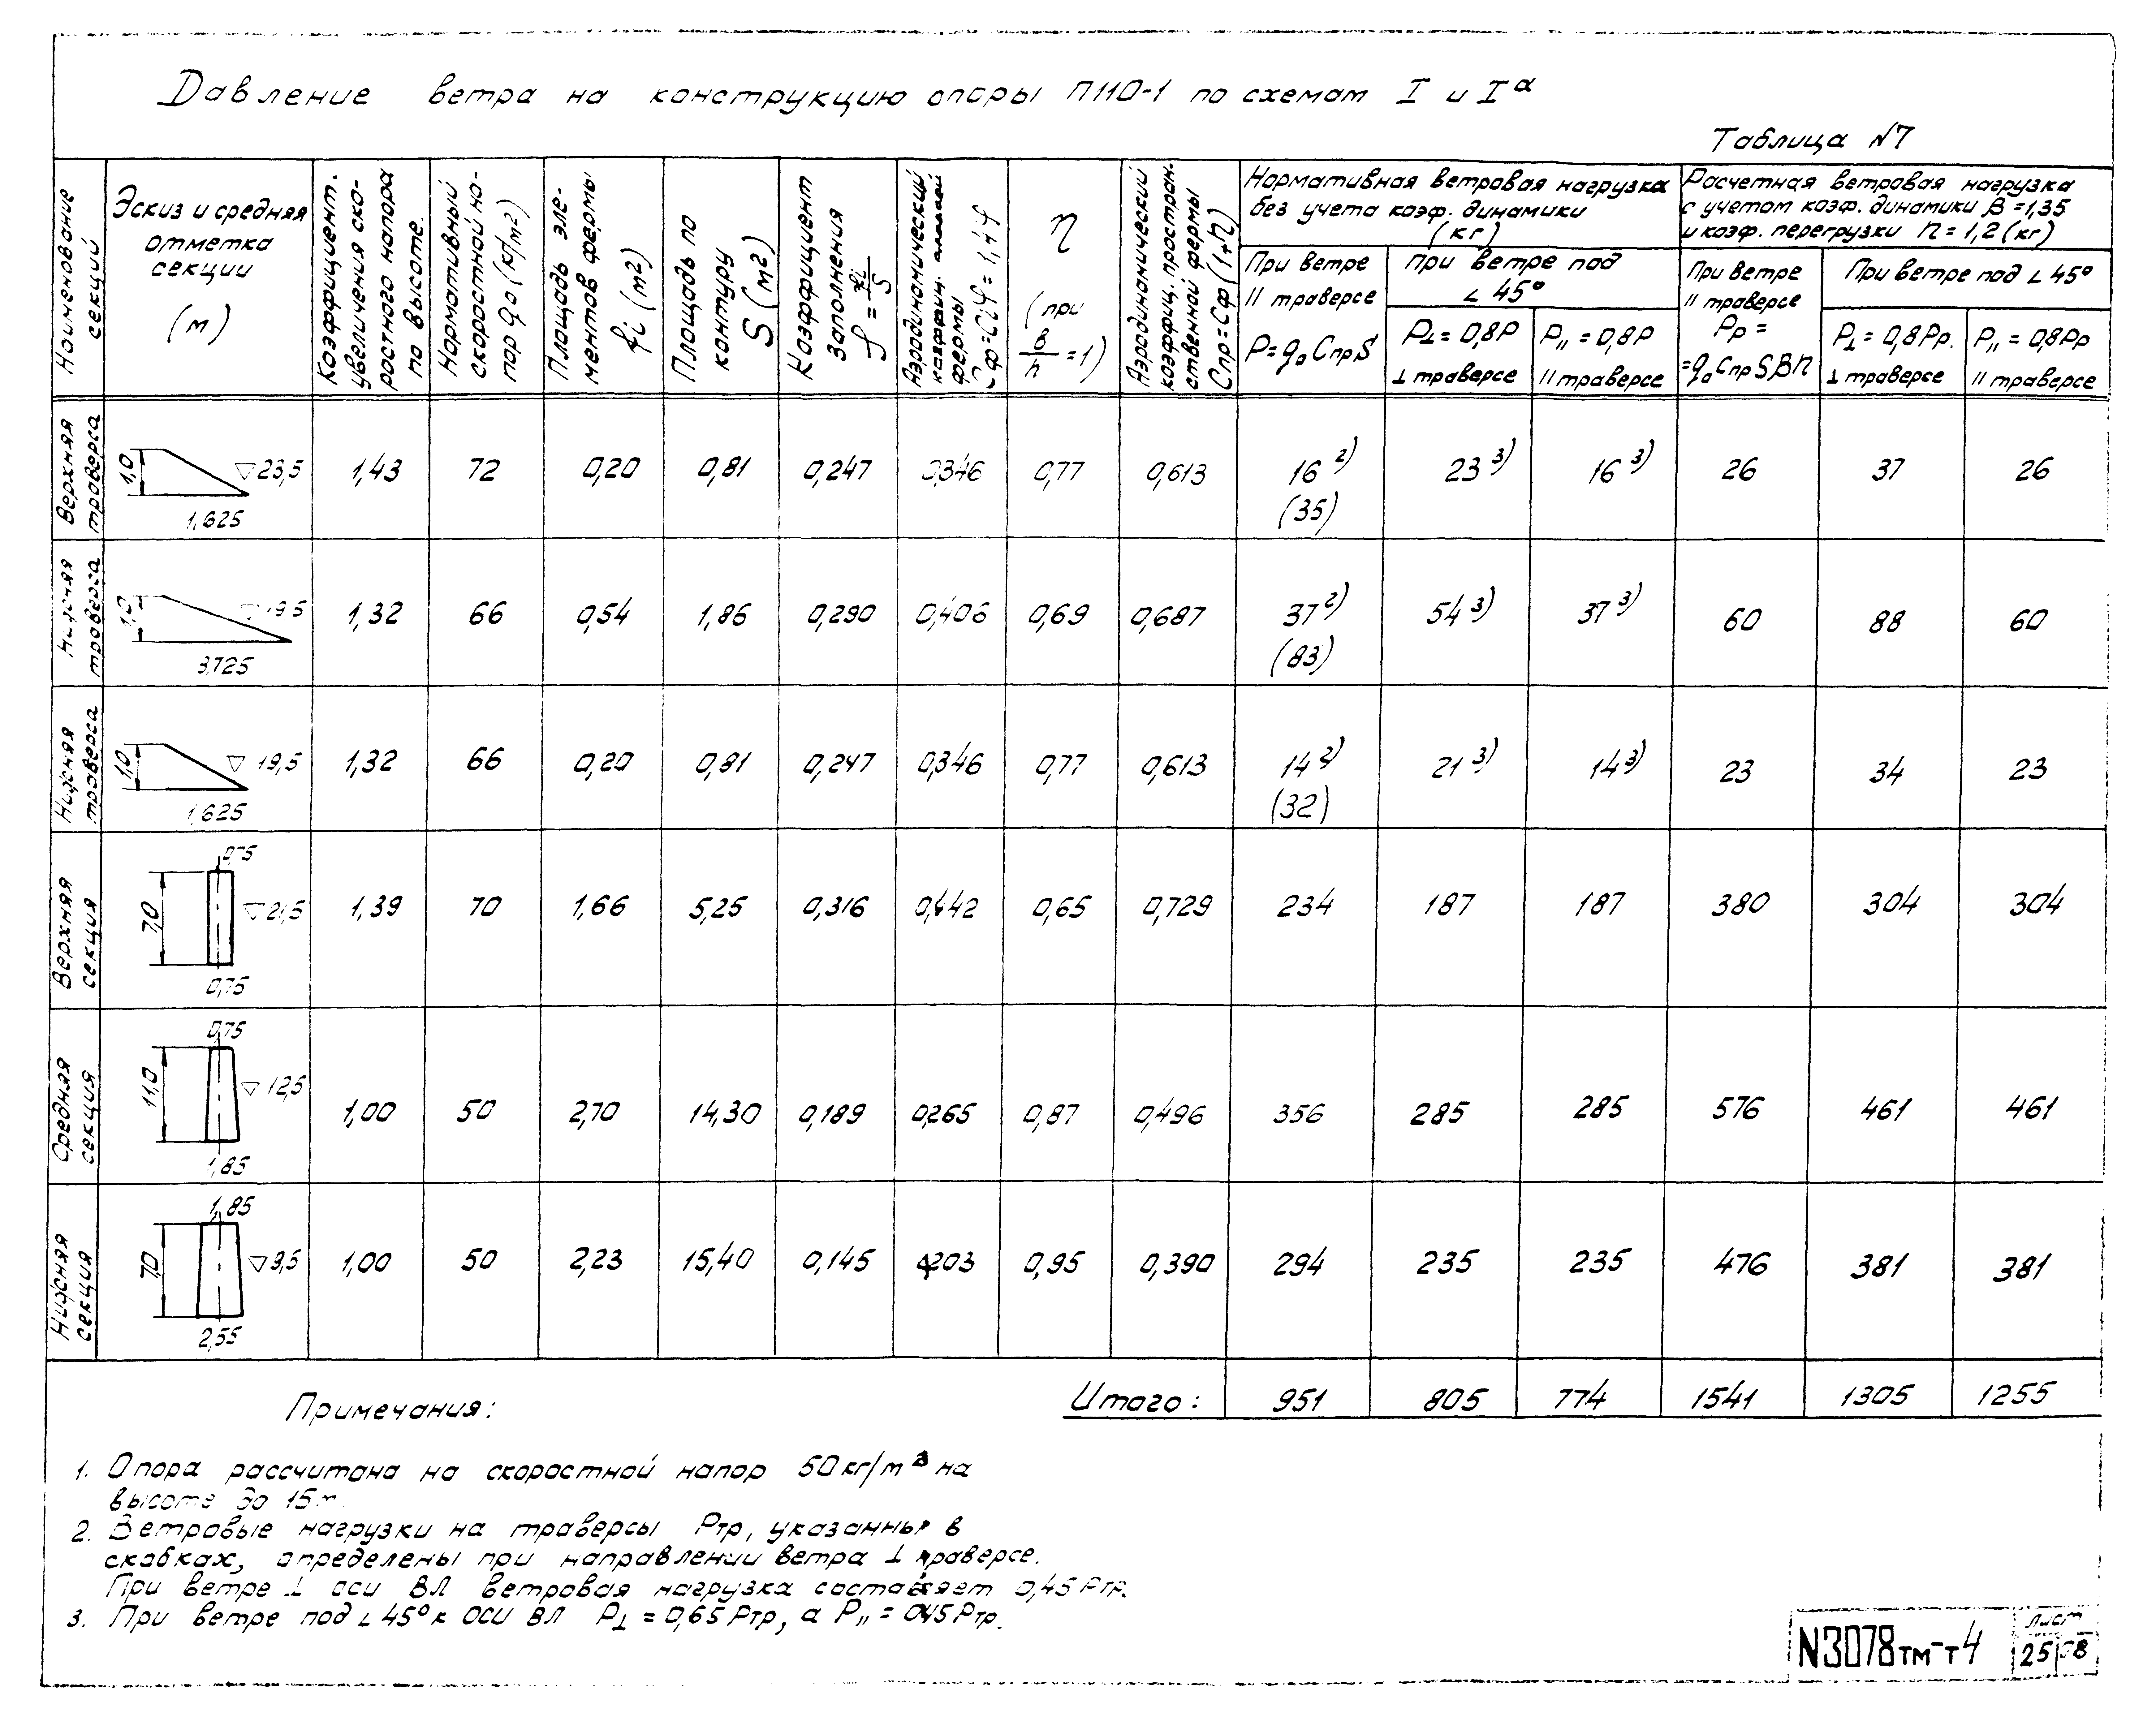 Давление ветра на конструкцию опоры П110-1 по схемам I и Iа
Таблица N7
Наименование секций
Эскиз и средняя отметка секции (м)
Коэффициент. увеличения скоростного напора по высоте.
Нормативный скоростной напор q₀ (кг/м²)
Площадь элементов фермы fi (м²)
Площадь по контуру S (м²)
Коэффициент заполнения φ = fi/S
Аэродинамический коэффиц. плоской фермы Cф=Ciφ=1,4φ
η (при в/h =1)
Аэродинамический коэффиц. пространственной фермы Cпр=Cф(1+η)
Нормативная ветровая нагрузка без учета коэф. динамики (кг)
При ветре // траверсе P=q₀CпрS
при ветре под ∠ 45°
P⊥=0,8P ⊥ траверсе
P//=0,8P // траверсе
Расчетная ветровая нагрузка с учетом коэф. динамики β=1,35 и коэф. перегрузки n=1,2 (кг)
При ветре // траверсе Pр= =q₀CпрSβn
При ветре под ∠ 45°
P⊥=0,8Pр. ⊥ траверсе
P//=0,8Pр // траверсе
Верхняя траверса 1,0 ▽23,5 1,625 1,43 72 0,20 0,81 0,247 0,346 0,77 0,613 16 2) (35) 23 3) 16 3) 26 37 26
Нижняя траверса 1,0 ▽19,5 3,725 1,32 66 0,54 1,86 0,290 0,406 0,69 0,687 37 2) (83) 54 3) 37 3) 60 88 60
Нижняя траверса 1,0 ▽19,5 1,625 1,32 66 0,20 0,81 0,247 0,346 0,77 0,613 14 2) (32) 21 3) 14 3) 23 34 23
Верхняя секция 0,75 7,0 ▽21,5 0,75 1,39 70 1,66 5,25 0,316 0,442 0,65 0,729 234 187 187 380 304 304
Средняя секция 0,75 11,0 ▽12,5 1,85 1,00 50 2,70 14,30 0,189 0,265 0,87 0,496 356 285 285 576 461 461
Нижняя секция 1,85 7,0 ▽3,5 2,55 1,00 50 2,23 15,40 0,145 0,203 0,95 0,390 294 235 235 476 381 381
Итого: 951 805 774 1541 1305 1255
Примечания:
1. Опора рассчитана на скоростной напор 50 кг/м² на
высоте до 15м.
2. Ветровые нагрузки на траверсы Pтр, указанные в
скобках, определены при направлении ветра ⊥ траверсе.
При ветре ⊥ оси ВЛ ветровая нагрузка составляет 0,45 Pтр.
3. При ветре под ∠ 45° к оси ВЛ P⊥ = 0,65 Pтр, а P// = 0,45 Pтр.
N3078тм-т4
лист
25